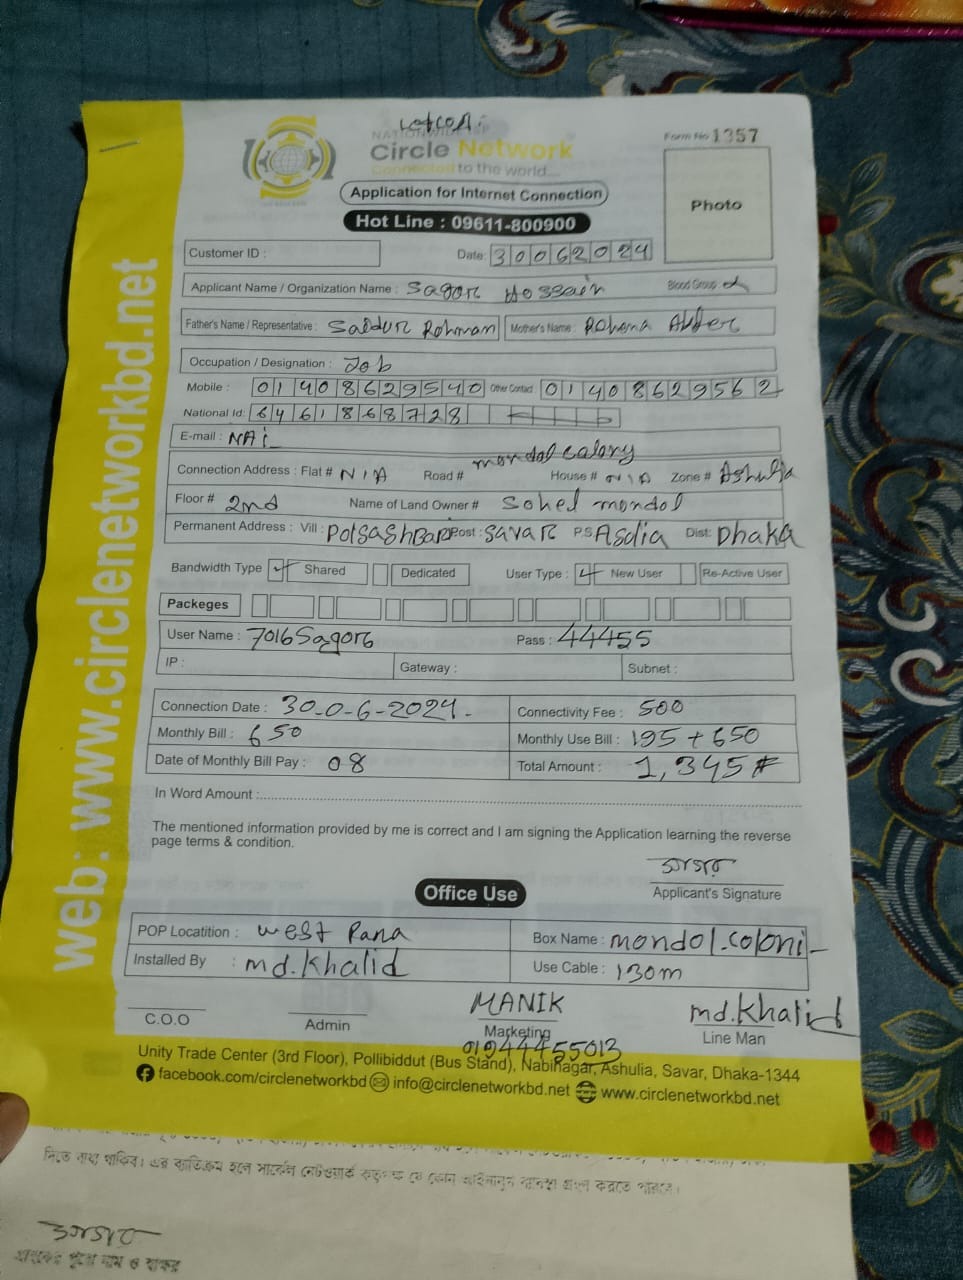 web: www.circlenetworkbd.net
Form No 1357
Circle Network
Connected to the world....
Application for Internet Connection
Photo
Hot Line : 09611-800900
Customer ID :
Date: 30062024
Applicant Name / Organization Name : Sagor Hossain Blood Group
Father's Name / Representative : Saidur Rohman Mother's Name : Rohema Akter
Occupation / Designation : Job
Mobile : 01408629540 Other Contact 01408629562
National Id: 6461868728
E-mail : NAi
Connection Address : Flat # N/A Road # mondol calony House # N/A Zone # Ashulia
Floor # 2nd Name of Land Owner # Sohel mondol
Permanent Address : Vill : PolsashBari Post : Savar P.S Asdia Dist: Dhaka
Bandwidth Type Shared Dedicated User Type : New User Re-Active User
Packeges
User Name : 7016Sagor6 Pass : 44455
IP : Gateway : Subnet :
Connection Date : 30-0-6-2024. Connectivity Fee : 500
Monthly Bill : 650 Monthly Use Bill : 195 + 650
Date of Monthly Bill Pay : 08 Total Amount : 1,345#
In Word Amount :
The mentioned information provided by me is correct and I am signing the Application learning the reverse
page terms & condition.
Applicant's Signature
Office Use
POP Locatition : west Para Box Name : mondol.coloni
Installed By : md.Khalid Use Cable : 130m
MANIK md.Khalid
C.O.O Admin Marketing Line Man
01944455013
Unity Trade Center (3rd Floor), Pollibiddut (Bus Stand), Nabinagar, Ashulia, Savar, Dhaka-1344
facebook.com/circlenetworkbd info@circlenetworkbd.net www.circlenetworkbd.net
দিতে বাধ্য থাকিব। এর ব্যতিক্রম হলে সার্কেল নেটওয়ার্ক কতৃপক্ষ যে কোন আইনানুগ ব্যবস্থা গ্রহণ করতে পারবে।
গ্রাহকের পুরো নাম ও স্বাক্ষর